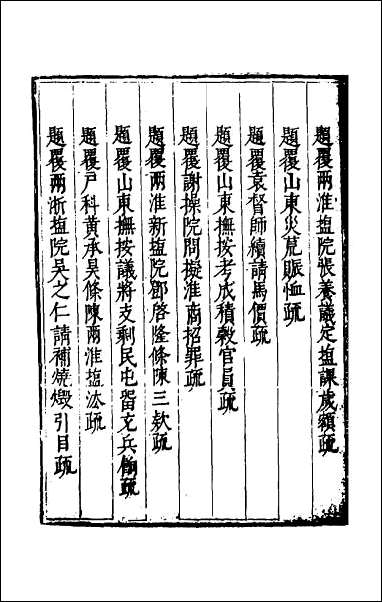 題覆兩淮塩院張養議定塩課歲額疏
題覆山東災荒賑恤疏
題覆袁督師續請馬價疏
題覆山東撫按考成積糓官員疏
題覆謝操院問擬淮商招罪疏
題覆兩淮新塩院鄧啓隆條陳三欵疏
題覆山東撫按議將支剩民屯留充兵餉疏
題覆戸科黃承昊條陳兩淮塩法疏
題覆兩浙塩院吳之仁請補燒燬引目疏